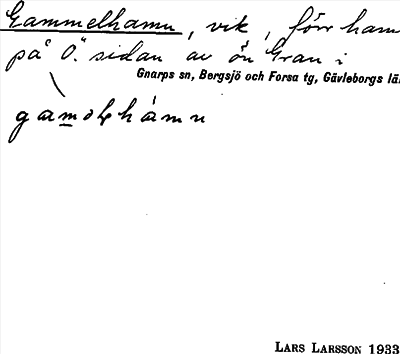 Gammelhamn, vik, förr ham
på Ö. sidan av ön Gran i
Gnarps sn, Bergsjö och Forsa tg, Gävleborgs lä
LARS LARSSON 1933